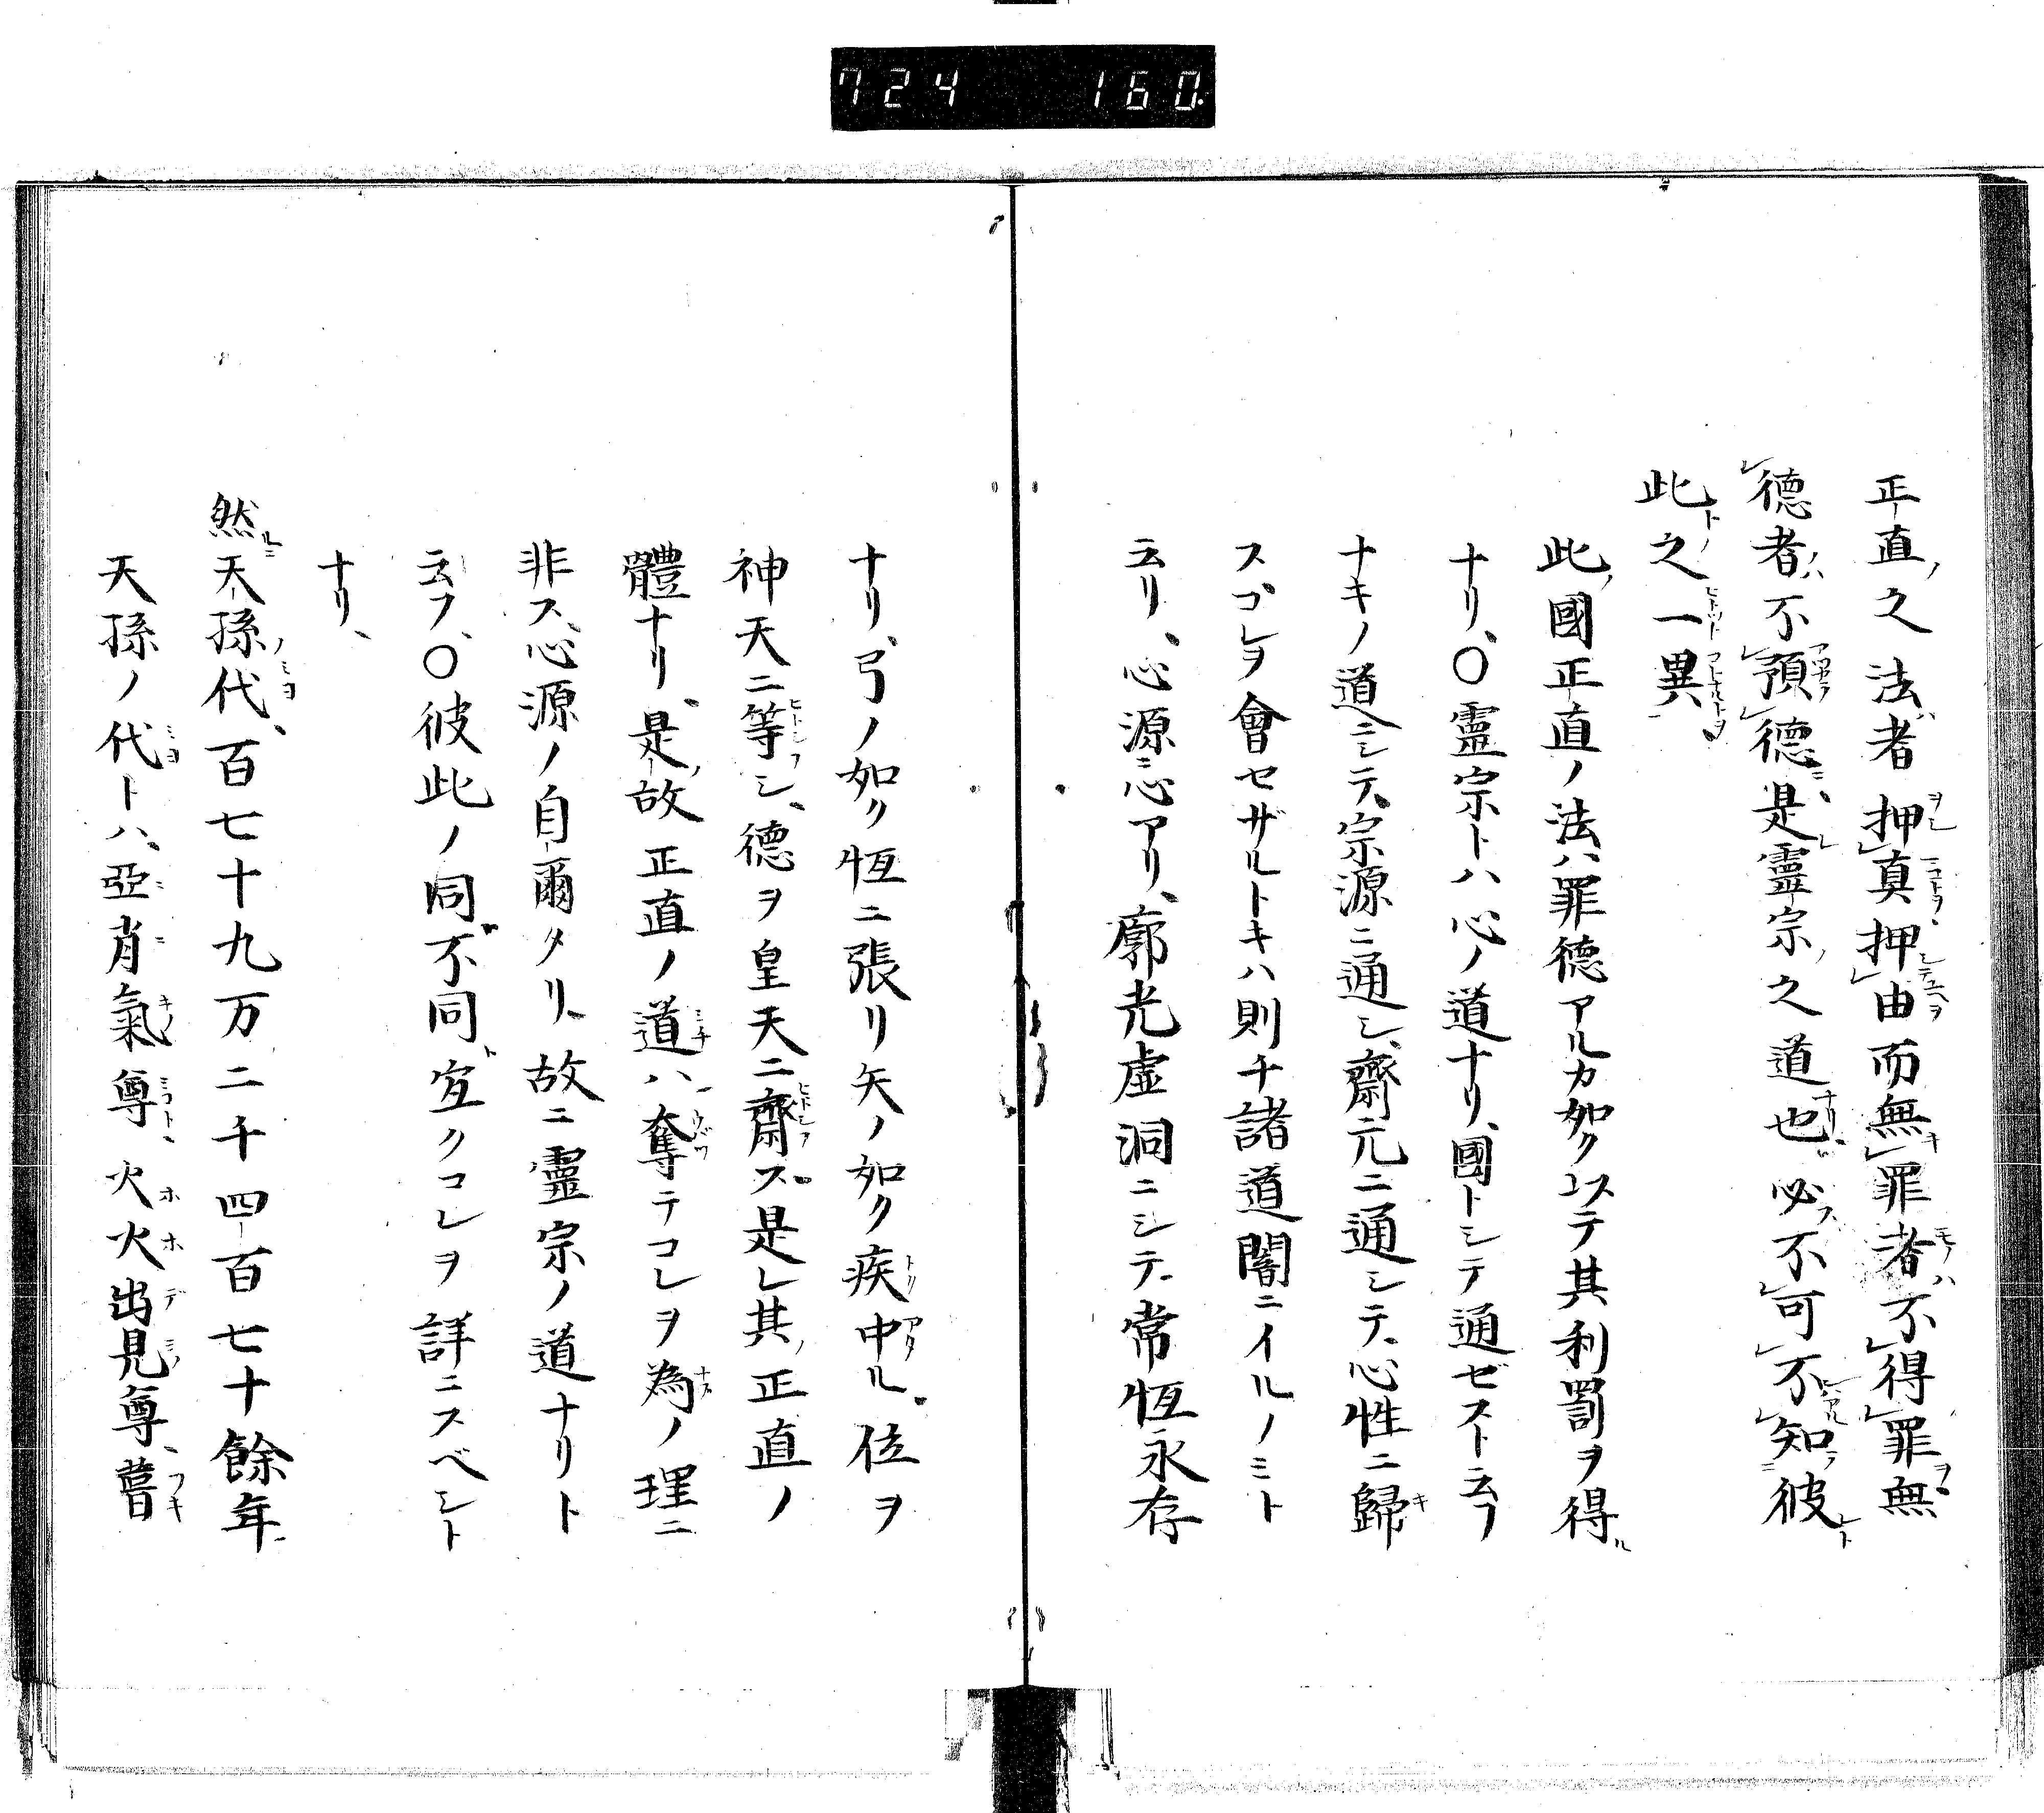 724 160
正直之法者押真押由而無罪者不得罪無
徳者不預徳是靈宗之道也必不可不知彼
此之一異
此國正直ノ法ハ罪徳アルカ如クコステ其利罰ヲ得ル
ナリ、〇靈宗トハ心ノ道ナリ、國トシテ通ゼスト云フ
ナキノ道ニシテ、宗源ニ通シ、齋元ニ通シテ、心性ニ歸
ス、コレヲ會セザルトキハ則チ諸道闇ニイルノミト
云リ、心源ニ心アリ、廓光虚洞ニシテ、常恆永存
ナリ、弓ノ如ク恆ニ張リ矢ノ如ク疾中ル、位ヲ
神天ニ等シ、徳ヲ皇天ニ齋ス、是レ其正直ノ
體ナリ、是故正直ノ道ハ奪テコレヲ為ノ理ニ
非ス、心源ノ自爾タリ、故ニ靈宗ノ道ナリト
云フ、〇彼此ノ同不同宜クコレヲ詳ニスベシト
ナリ、
然天孫代、百七十九万二千四百七十餘年
天孫ノ代トハ、亞肖氣尊、火火出見尊、葺